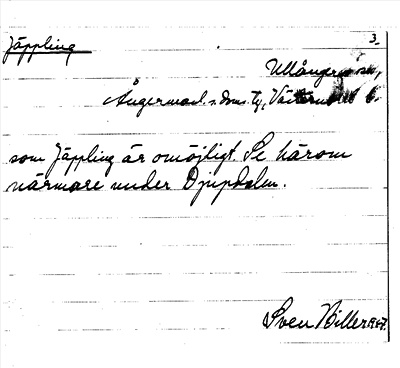 Jäppling 3.
Ullångers sn,
Ångerml. s. doms.
som Jäppling är omöjligt. Se härom
närmare under Djupdalen.
Sven Biller 1967.